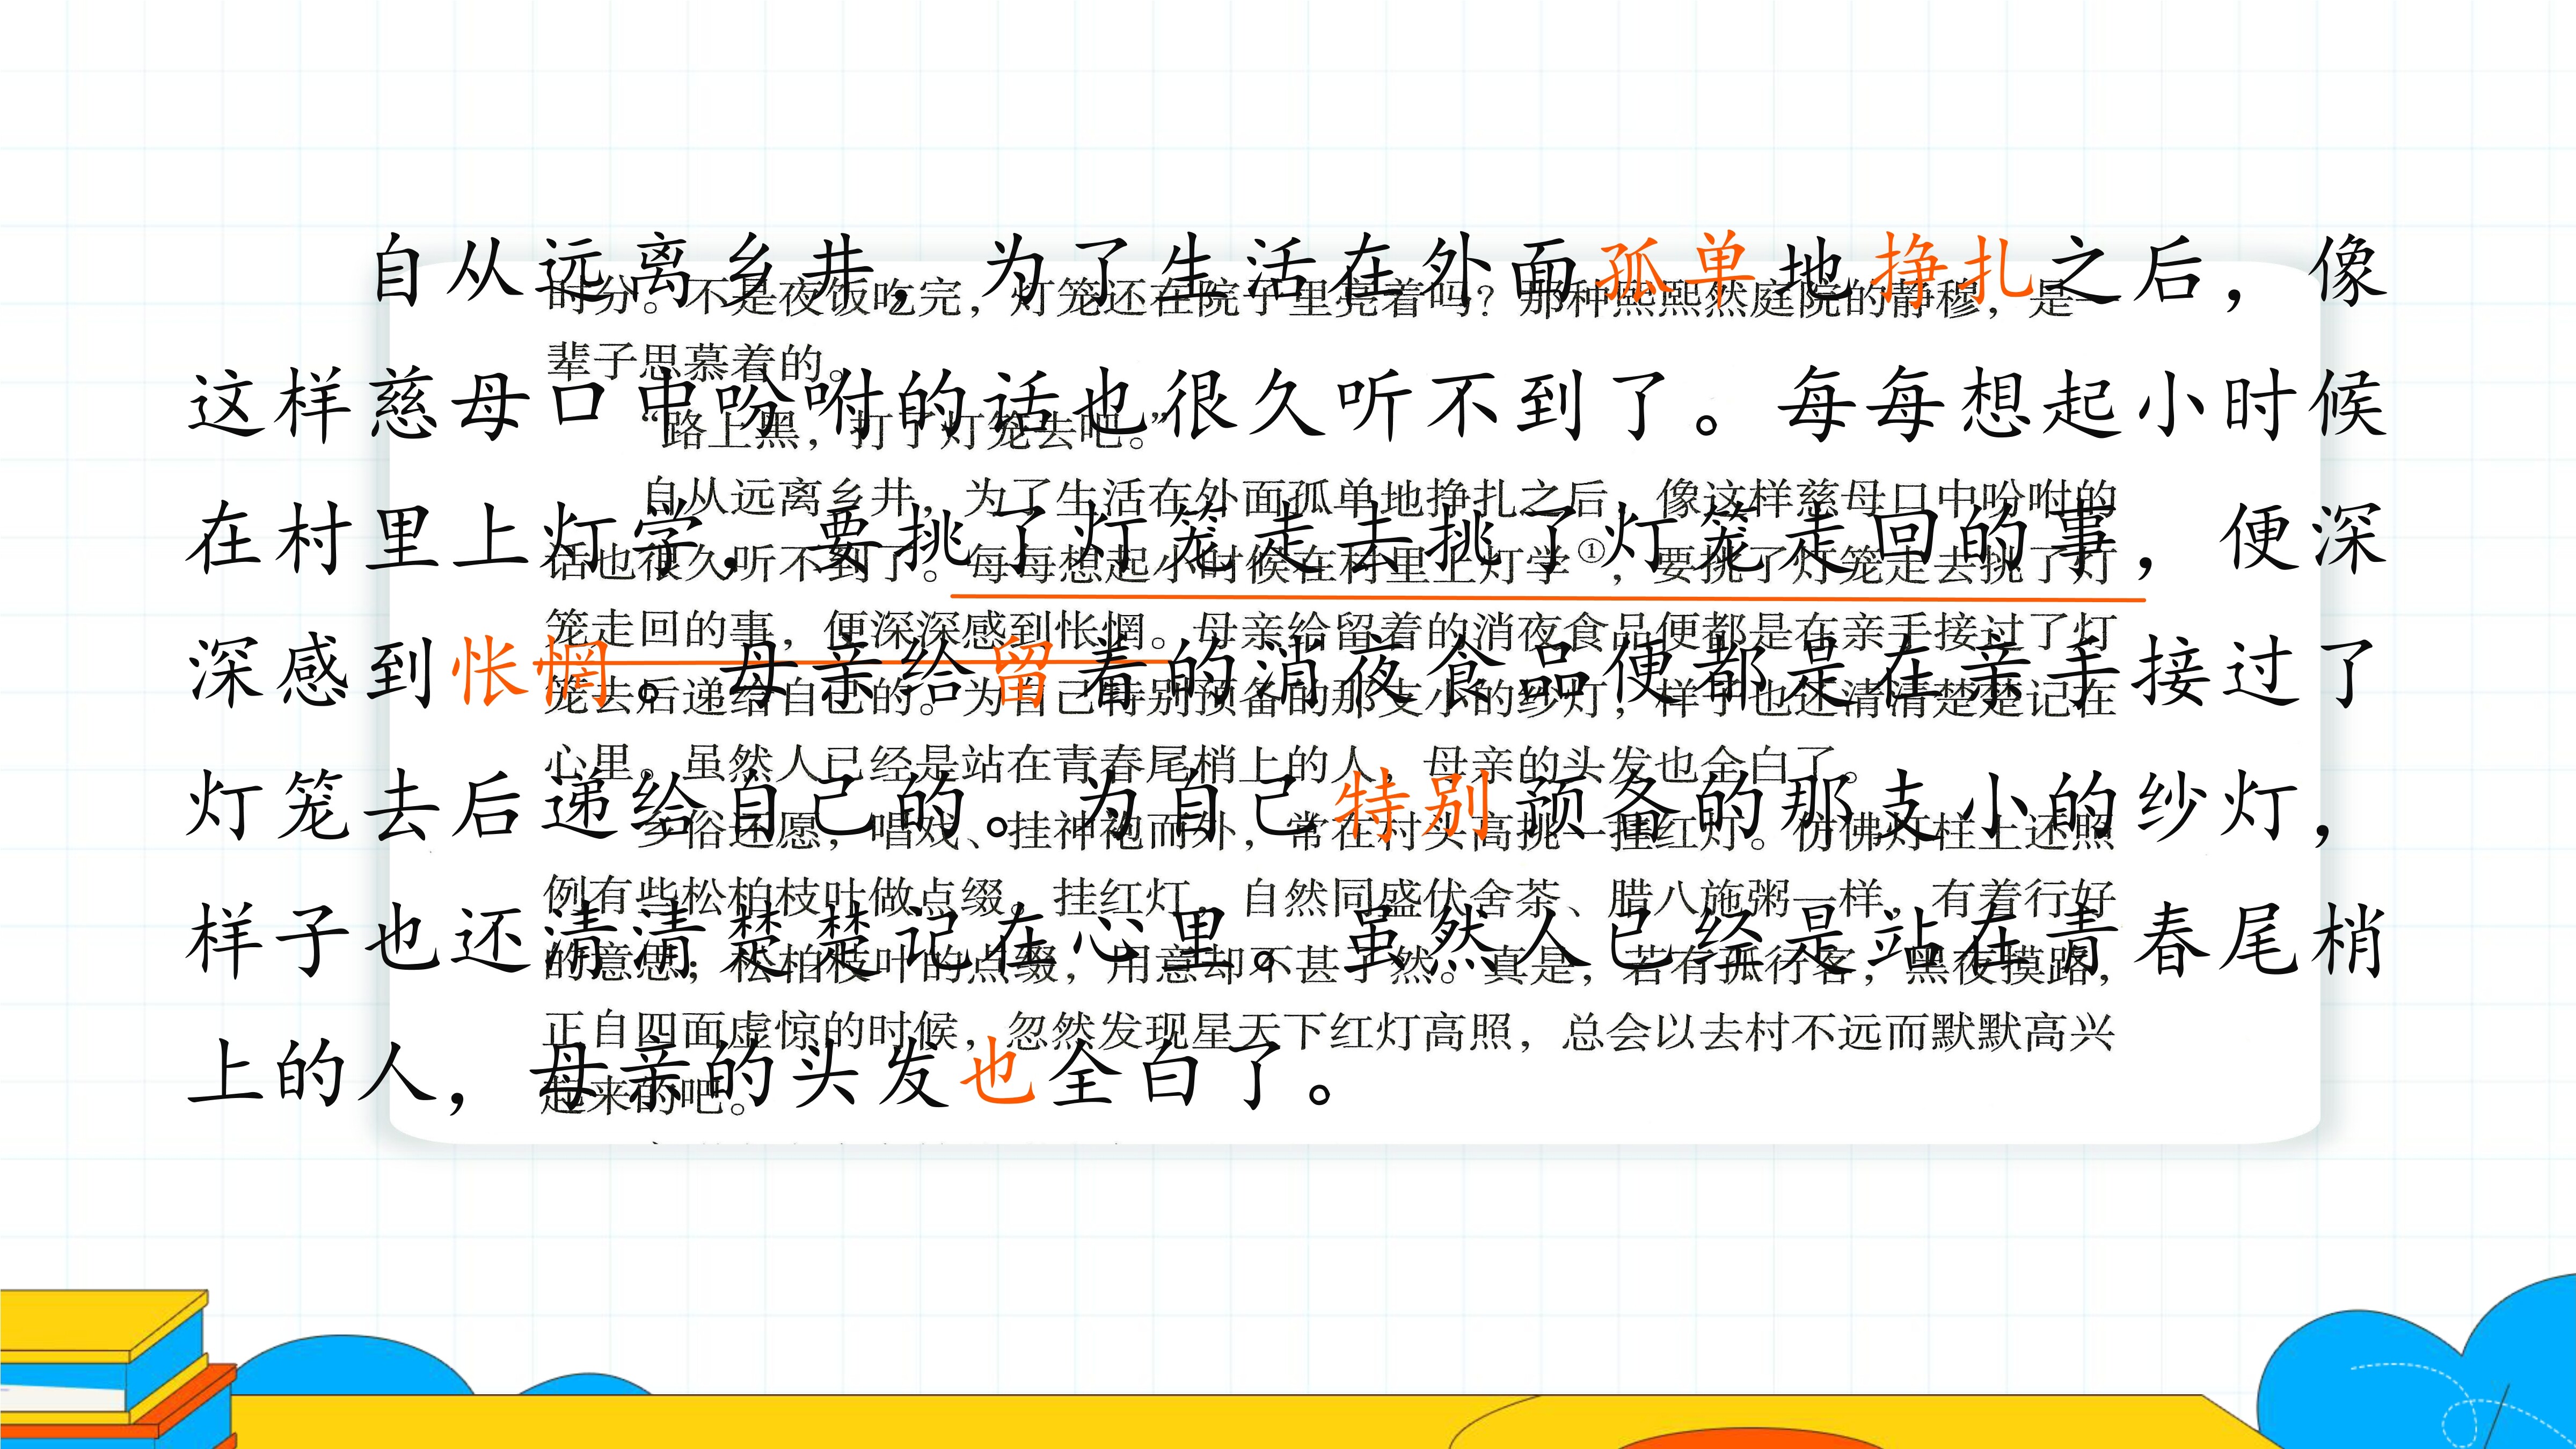 自从远离乡井，为了生活在外面孤单地挣扎之后，像
这样慈母口中吩咐的话也很久听不到了。每每想起小时候
在村里上灯学，要挑了灯笼走去挑了灯笼走回的事，便深
深感到怅惘。母亲给留着的消夜食品便都是在亲手接过了
灯笼去后递给自己的。为自己特别预备的那支小的纱灯，
样子也还清清楚楚记在心里。虽然人已经是站在青春尾梢
上的人，母亲的头发也全白了。
时分。不是夜饭吃完，灯笼还在院子里亮着吗？那种熙熙然庭院的静穆，是一
辈子思慕着的。
“路上黑，打了灯笼去吧。”
自从远离乡井，为了生活在外面孤单地挣扎之后，像这样慈母口中吩咐的
话也很久听不到了。每每想起小时候在村里上灯学①，要挑了灯笼走去挑了灯
笼走回的事，便深深感到怅惘。母亲给留着的消夜食品便都是在亲手接过了灯
笼去后递给自己的。为自己特别预备的那支小的纱灯，样子也还清清楚楚记在
心里。虽然人已经是站在青春尾梢上的人，母亲的头发也全白了。
乡俗还愿，唱戏、挂神袍而外，常在村头高挑一挂红灯。仿佛灯柱上还照
例有些松柏枝叶做点缀。挂红灯，自然同盛伏舍茶、腊八施粥一样，有着行好
的意思；松柏枝叶的点缀，用意却不甚了然。真是，若有孤行客，黑夜摸路，
正自四面虚惊的时候，忽然发现星天下红灯高照，总会以去村不远而默默高兴
起来的吧。